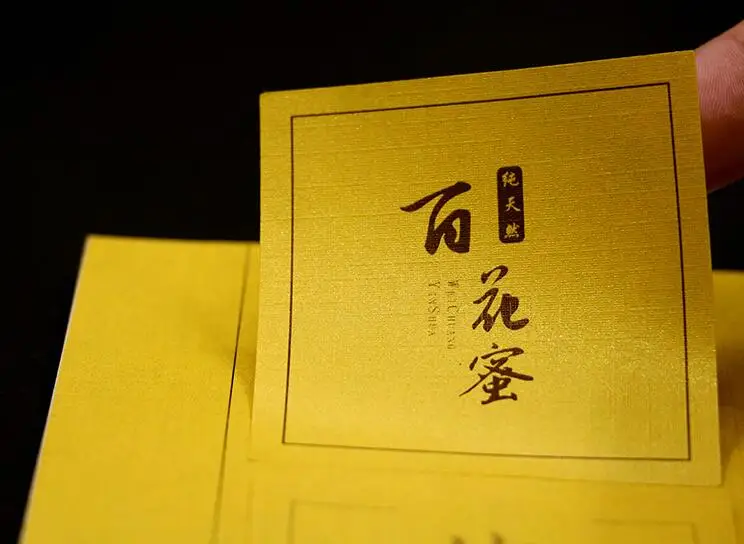 纯天然
百花蜜
WeiChuang
YinShua